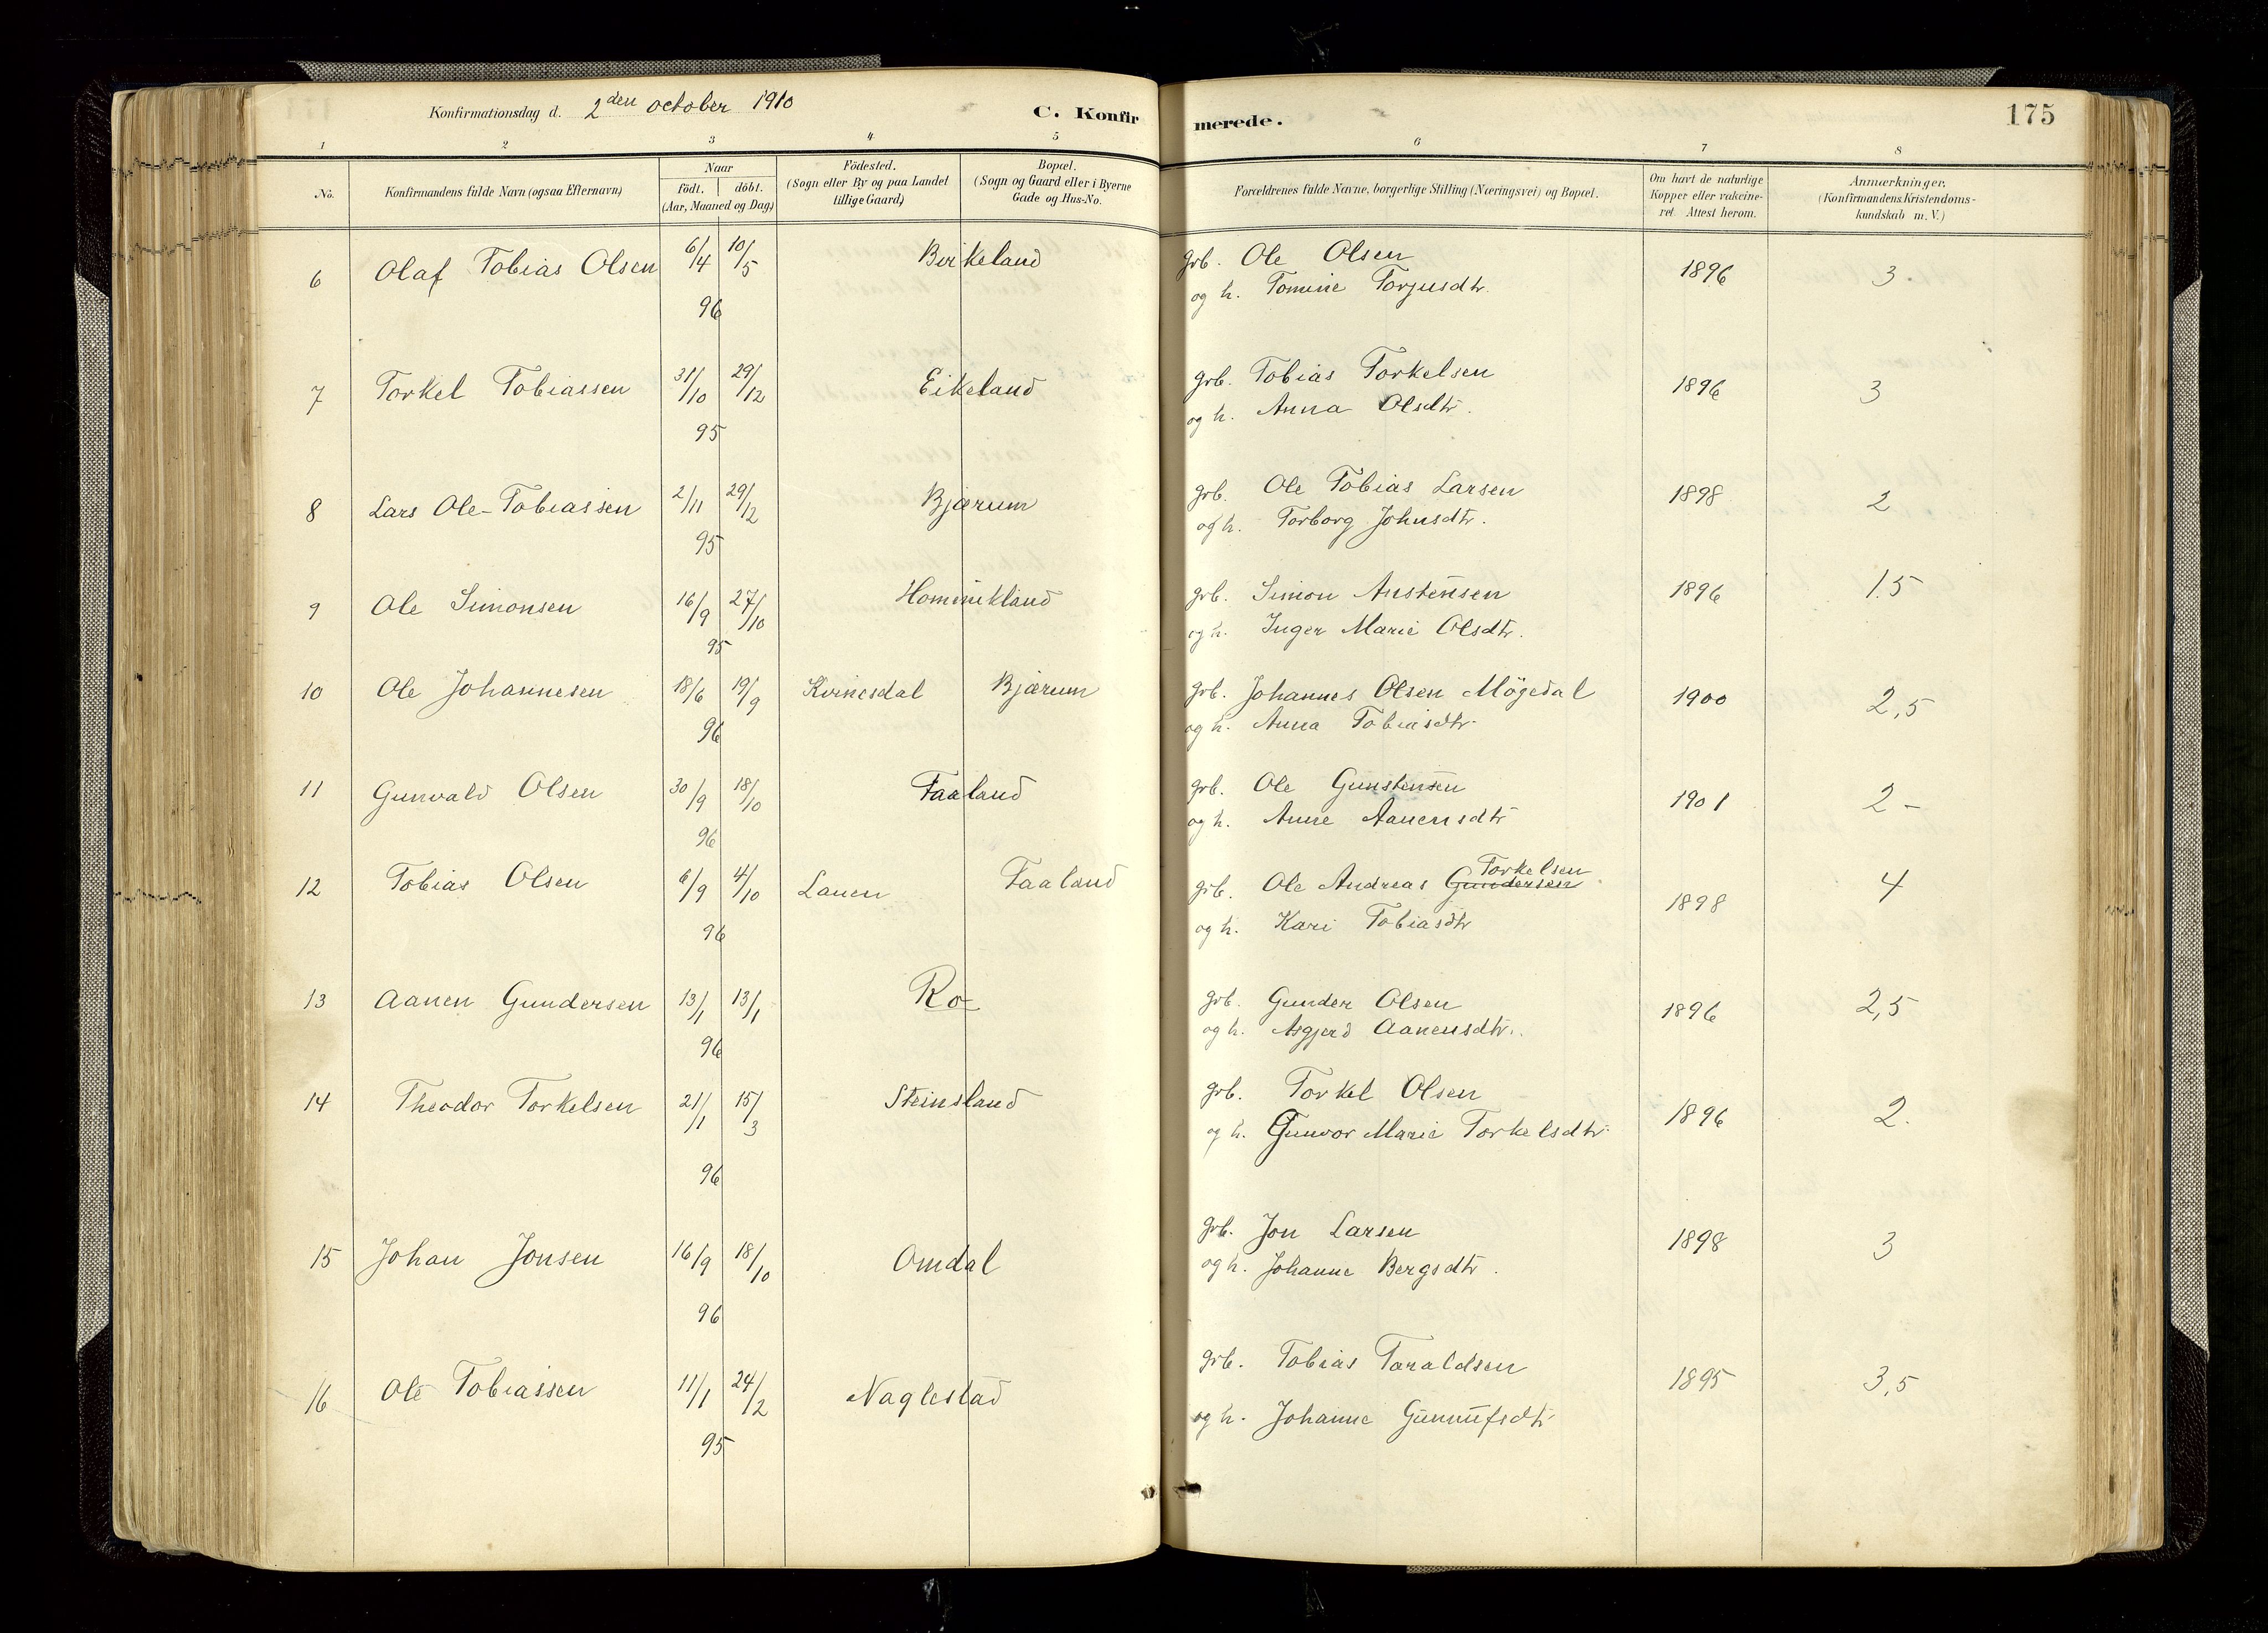 Konfirmationsdag d. 2den october 1910
C. Konfirmerede.
175
1 2 3 4 5 6 7 8
No. Konfirmandens fulde Navn (ogsaa Efternavn) Naar födt. döbt. (Aar, Maaned og Dag) Födested. (Sogn eller By og paa Landet tillige Gaard) Bopæl. (Sogn og Gaard eller i Byerne Gade og Hus-No. Forældrenes fulde Navne, borgerlige Stilling (Næringsvei) og Bopæl. Om havt de naturlige Kopper eller vakcineret. Attest herom. Anmærkninger. (Konfirmandens Kristendomskundskab m. V.)
6 Olaf Tobias Olsen 6/4 10/5 Birkeland grb. Ole Olsen 1896 3
96 og h. Tomine Torjusdtr.
7 Torkel Tobiassen 31/10 29/12 Eikeland grb. Tobias Torkelsen 1896 3
95 og h. Anna Olsdtr.
8 Lars Ole Tobiassen 2/11 29/12 Bjærum grb. Ole Tobias Larsen 1898 2
95 og h. Torborg Johnsdtr.
9 Ole Simonsen 16/9 27/10 Hommekland grb. Simon Austensen 1896 1.5
95 og h. Inger Marie Olsdtr.
10 Ole Johannesen 18/6 19/9 Kvinesdal Bjærum grb. Johannes Olsen Mögedal 1900 2,5
96 og h. Anna Tobiasdtr.
11 Gunvald Olsen 30/9 18/10 Faaland grb. Ole Gunstensen 1901 2 -
96 og h. Anne Aanensdtr
12 Tobias Olsen 6/9 4/10 Lauen Faaland grb. Ole Andreas Gundersen Torkelsen 1898 4
96 og h. Kari Tobiasdtr
13 Aanen Gundersen 13/1 13/1 Ro grb. Gunder Olsen 1896 2,5
96 og h. Asgjerd Aanensdtr.
14 Theodor Torkelsen 21/1 15/3 Steinsland grb. Torkel Olsen 1896 2.
96 og h. Gunvor Marie Torkelsdtr
15 Johan Jonsen 16/9 18/10 Omdal grb. Jon Larsen 1898 3
96 og h. Johanne Bergsdtr.
16 Ole Tobiassen 11/1 24/2 Naglestad grb. Tobias Taraldsen 1895 3,5
95 og h. Johanne Gunnufsdtr